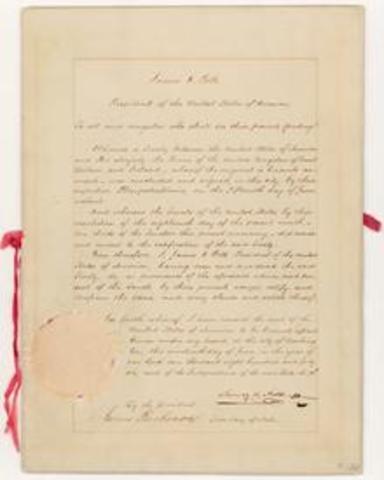 James K. Polk
President of the United States of America,
To all and singular who shall see these presents greeting:
Whereas a Treaty between the United States of America
and Her Majesty the Queen of the United Kingdom of Great
Britain and Ireland,
the fifteenth day of June
And whereas the Senate of the United States by their
resolution of the eighteenth day of the same month
two thirds of the Senators then present concurring, did advise
and consent to the ratification of the said treaty.
Now therefore I, James K. Polk President of the United
States of America, having seen and considered the said
Treaty, do in pursuance of the aforesaid advice and con-
sent of the Senate by these presents accept, ratify and
confirm the same and every clause and article thereof.
In faith whereof I have caused the seal of the
United States of America to be hereunto affixed
Given under my hand, at the city of Washing
ton, this day of June, in the year of
our Lord one thousand eight hundred and forty
six, and of the Independence of the
James K. Polk
By the President
James Buchanan Secretary of State